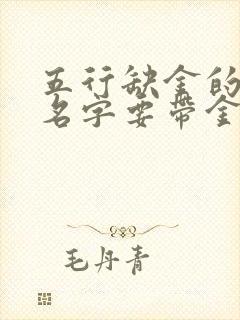 五行缺金的
名字要带金
毛丹青